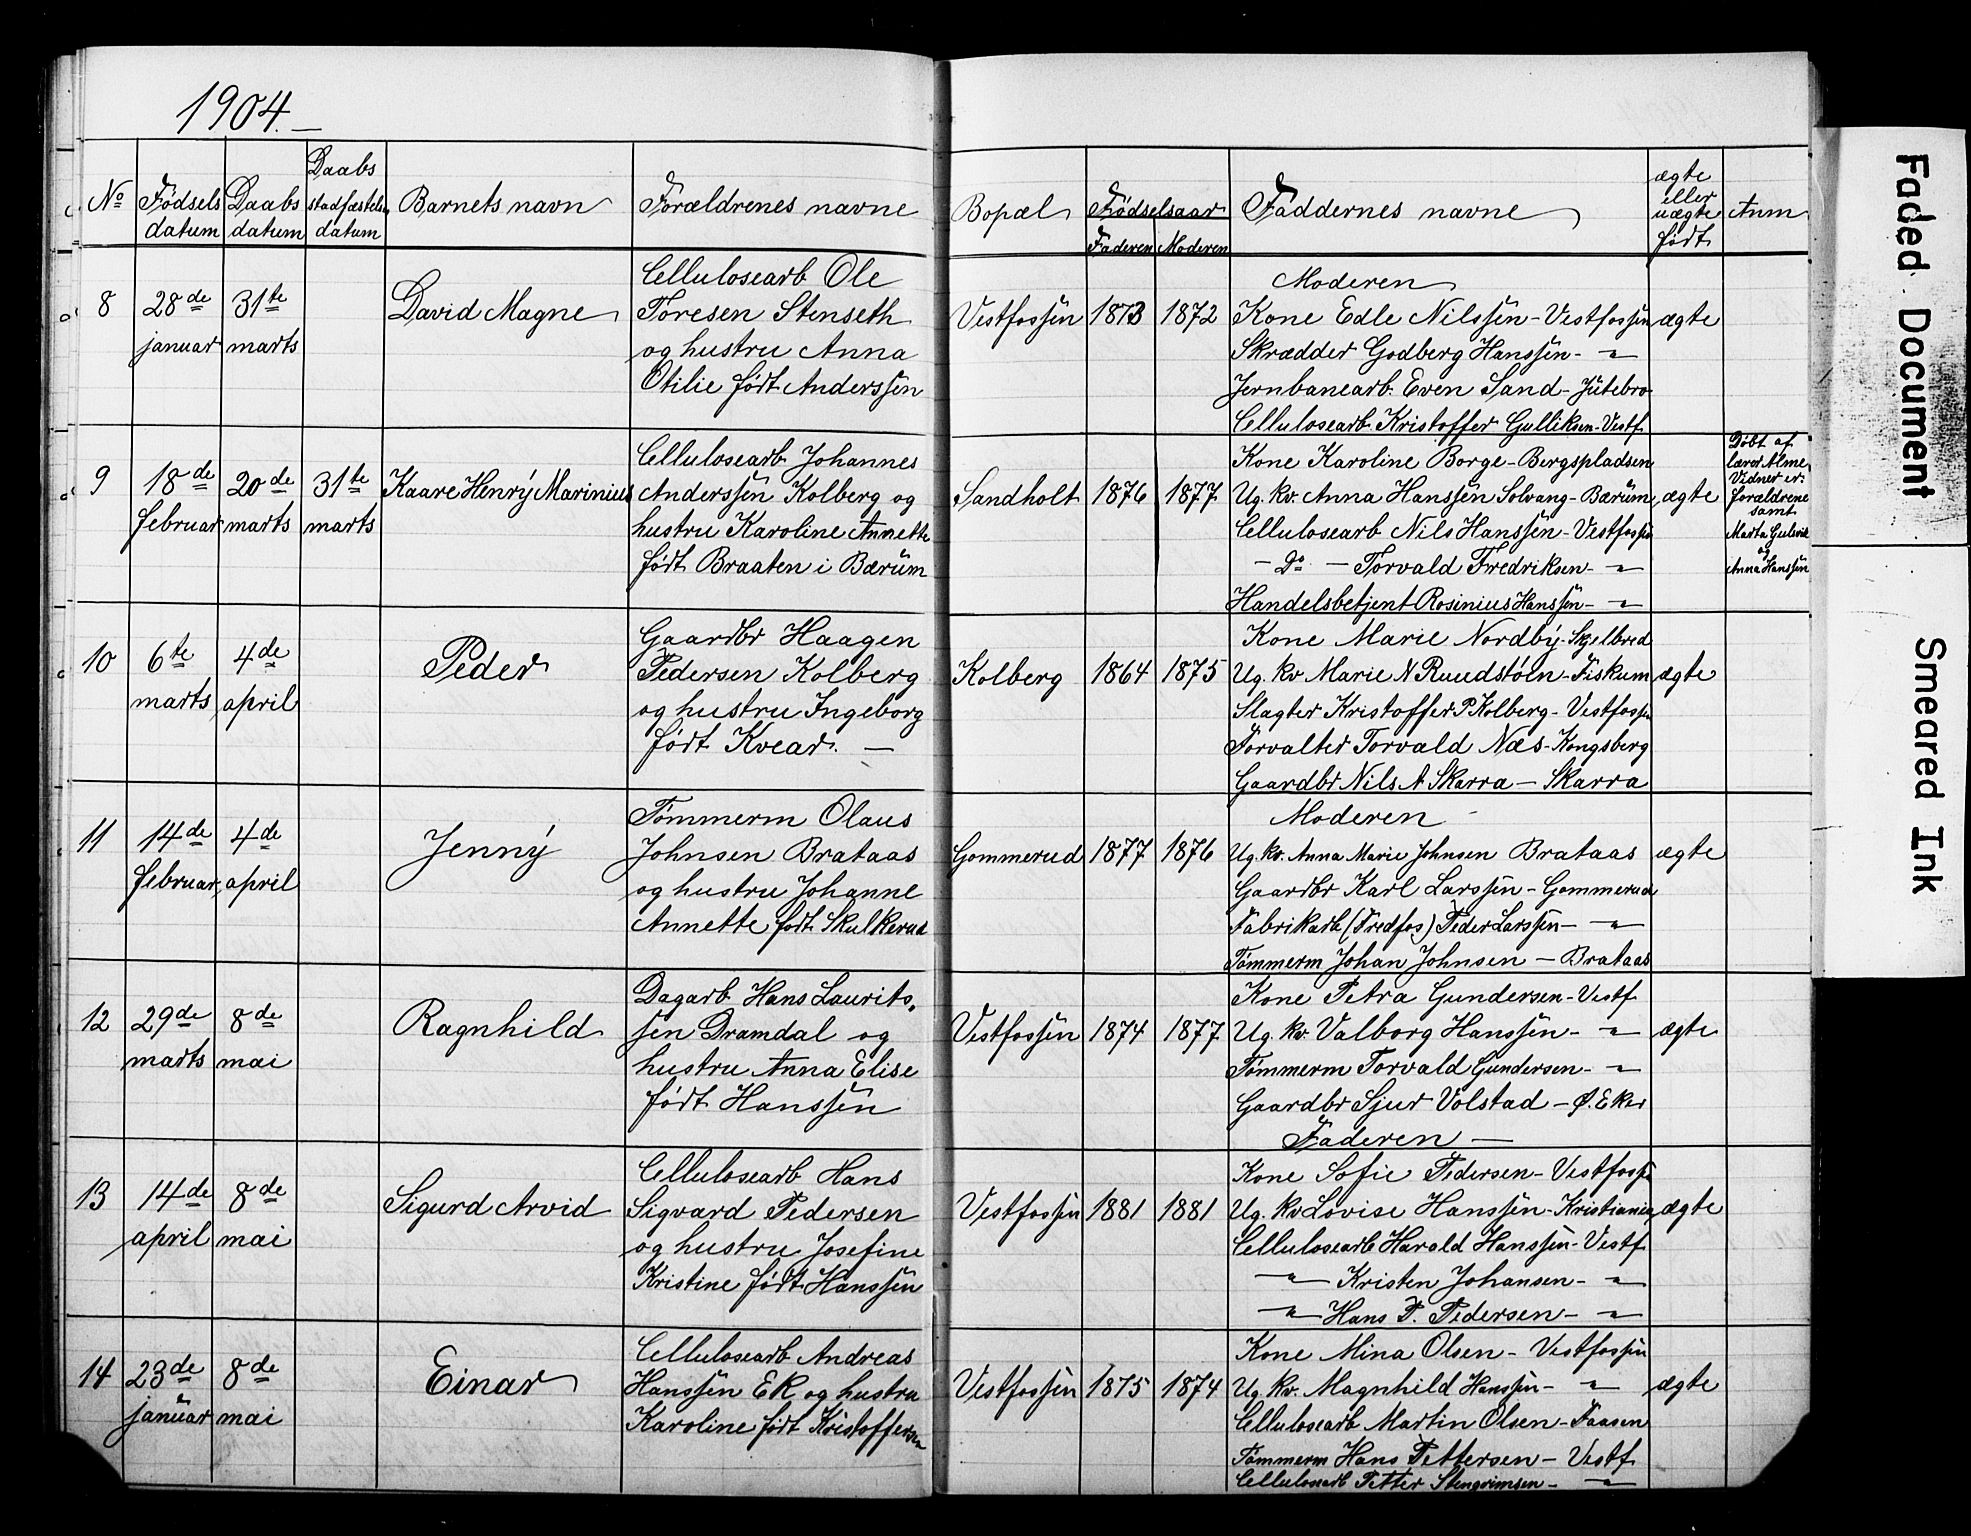 1904.
No
Fødsels
datum
Daabs
datum
Daabs
stadfæstelses
datum
Barnets navn
Forældrenes navne
Bopæl
Fødselsaar
Faderen
Moderen
Faddernes navne
ægte
eller
uægte
født
Anm
8
28de
januar
31te
marts
David Magne
Cellulosearb Ole
Toresen Stenseth
og hustru Anna
Otilie født Anderssen
Vestfossen
1873
1872
Moderen
Kone Edle Nilssen - Vestfossen
Skrædder Godberg Hanssen - "
Jernbanearb. Even Sand - Jütebro
Cellulosearb Kristoffer Gulliksen - Vestf
ægte
9
18de
februar
20de
marts
31te
marts
Kaare Henrÿ Marinius
Cellulosearb Johannes
Anderssen Kolberg og
hustru Karoline Annette
født Braaten i Bærüm
Sandholt
1876
1877
Kone Karoline Borge - Bergspladsen
Ug. kv. Anna Hanssen Solvang - Bærüm
Cellulosearb Nils Hanssen - Vestfossen
- Do - Torvald Fredriksen - "
Handelsbetjent Rosinius Hanssen - "
ægte
Døbt af
lærer Alme
Vidner er:
forældrene
samt
Marta Gulsvik
og
Anna Hanssen
10
6te
marts
4de
april
Peder
Gaardbr Haagen
Pedersen Kolberg
og hustru Ingeborg
født Kvear. —
Kolberg
1864
1875
Kone Marie Nordbÿ - Skjelbred
Ug. kv Marie N Ruudstøln - Fiskum
Slagter Kristoffer P. Kolberg - Vestfossen
Forvalter Torvald Næs - Kongsberg
Gaardbr Nils A Skarra — Skarra
ægte
11
14de
februar
4de
april
Jennÿ
Tømmerm Olaus
Johnsen Brataas
og hustru Johanne
Annette født Skulkerud
Gommerud
1877
1876
Moderen
Ug. kv. Anna Marie Johnsen Brataas
Gaardbr Karl Larssen - Gommerud
Fabrikarb (Fredfos) Peder Larssen - "
Tømmerm Johan Johnsen - Brataas
ægte
12
29de
marts
8de
mai
Ragnhild
Dagarb Hans Laurits-
sen Dramdal og
hustru Anna Elise
født Hanssen
Vestfossen
1874
1877
Kone Petra Gundersen - Vestf
Ug. kv. Valborg Hanssen - "
Tømmerm Torvald Gundersen - "
Gaardbr Sjur Volstad - Ø. Eker
Faderen —
ægte
13
14de
april
8de
mai
Sigurd Arvid
Cellulosearb Hans
Sigvard Pedersen
og hustru Josefine
Kristine født Hanssen
Vestfossen
1881
1881
Kone Sofie Pedersen - Vestfossen
Ug. kv Lovise Hanssen - Kristiania
Cellulosearb Harald Hanssen - Vestf
" Kristen Johansen - "
" Hans P. Pedersen - "
ægte
14
23de
januar
8de
mai
Einar
Cellulosearb Andreas
Hanssen Ek og hustru
Karoline født Kristoffersen
Vestfossen
1875
1874
Kone Mina Olsen - Vestfossen
Ug. kv. Magnhild Hanssen - "
Cellulosearb Martin Olsen - Faasen
Tømmerm Hans Pettersen - Vestf
Cellulosearb Petter Stengrimsen - "
ægte
Faded Document
Smeared Ink